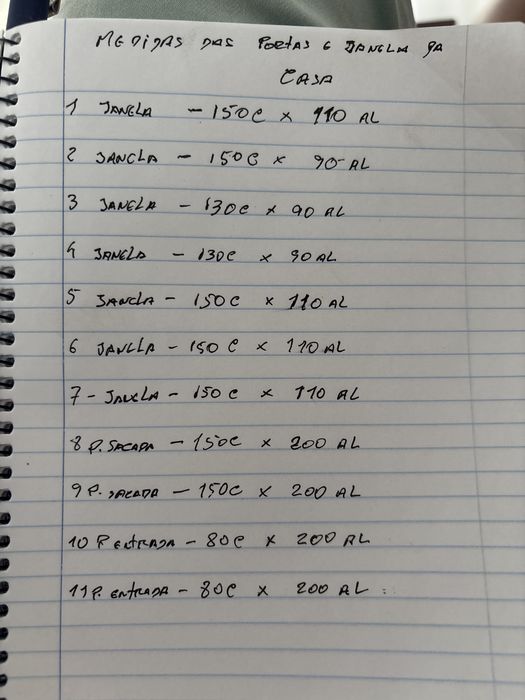 MEDIDAS DAS PORTAS E JANELA DA
CASA
1 JANELA - 150C x 110 AL
2 JANELA - 150C x 90 AL
3 JANELA - 130C x 90 AL
4 JANELA - 130C x 90 AL
5 JANELA - 150C x 110 AL
6 JANELA - 150 C x 110 AL
7 - JANELA - 150 C x 110 AL
8 P. SACADA - 150C x 200 AL
9 P. SACADA - 150C x 200 AL
10 P ENTRADA - 80C x 200 AL
11 P. ENTRADA - 80C x 200 AL